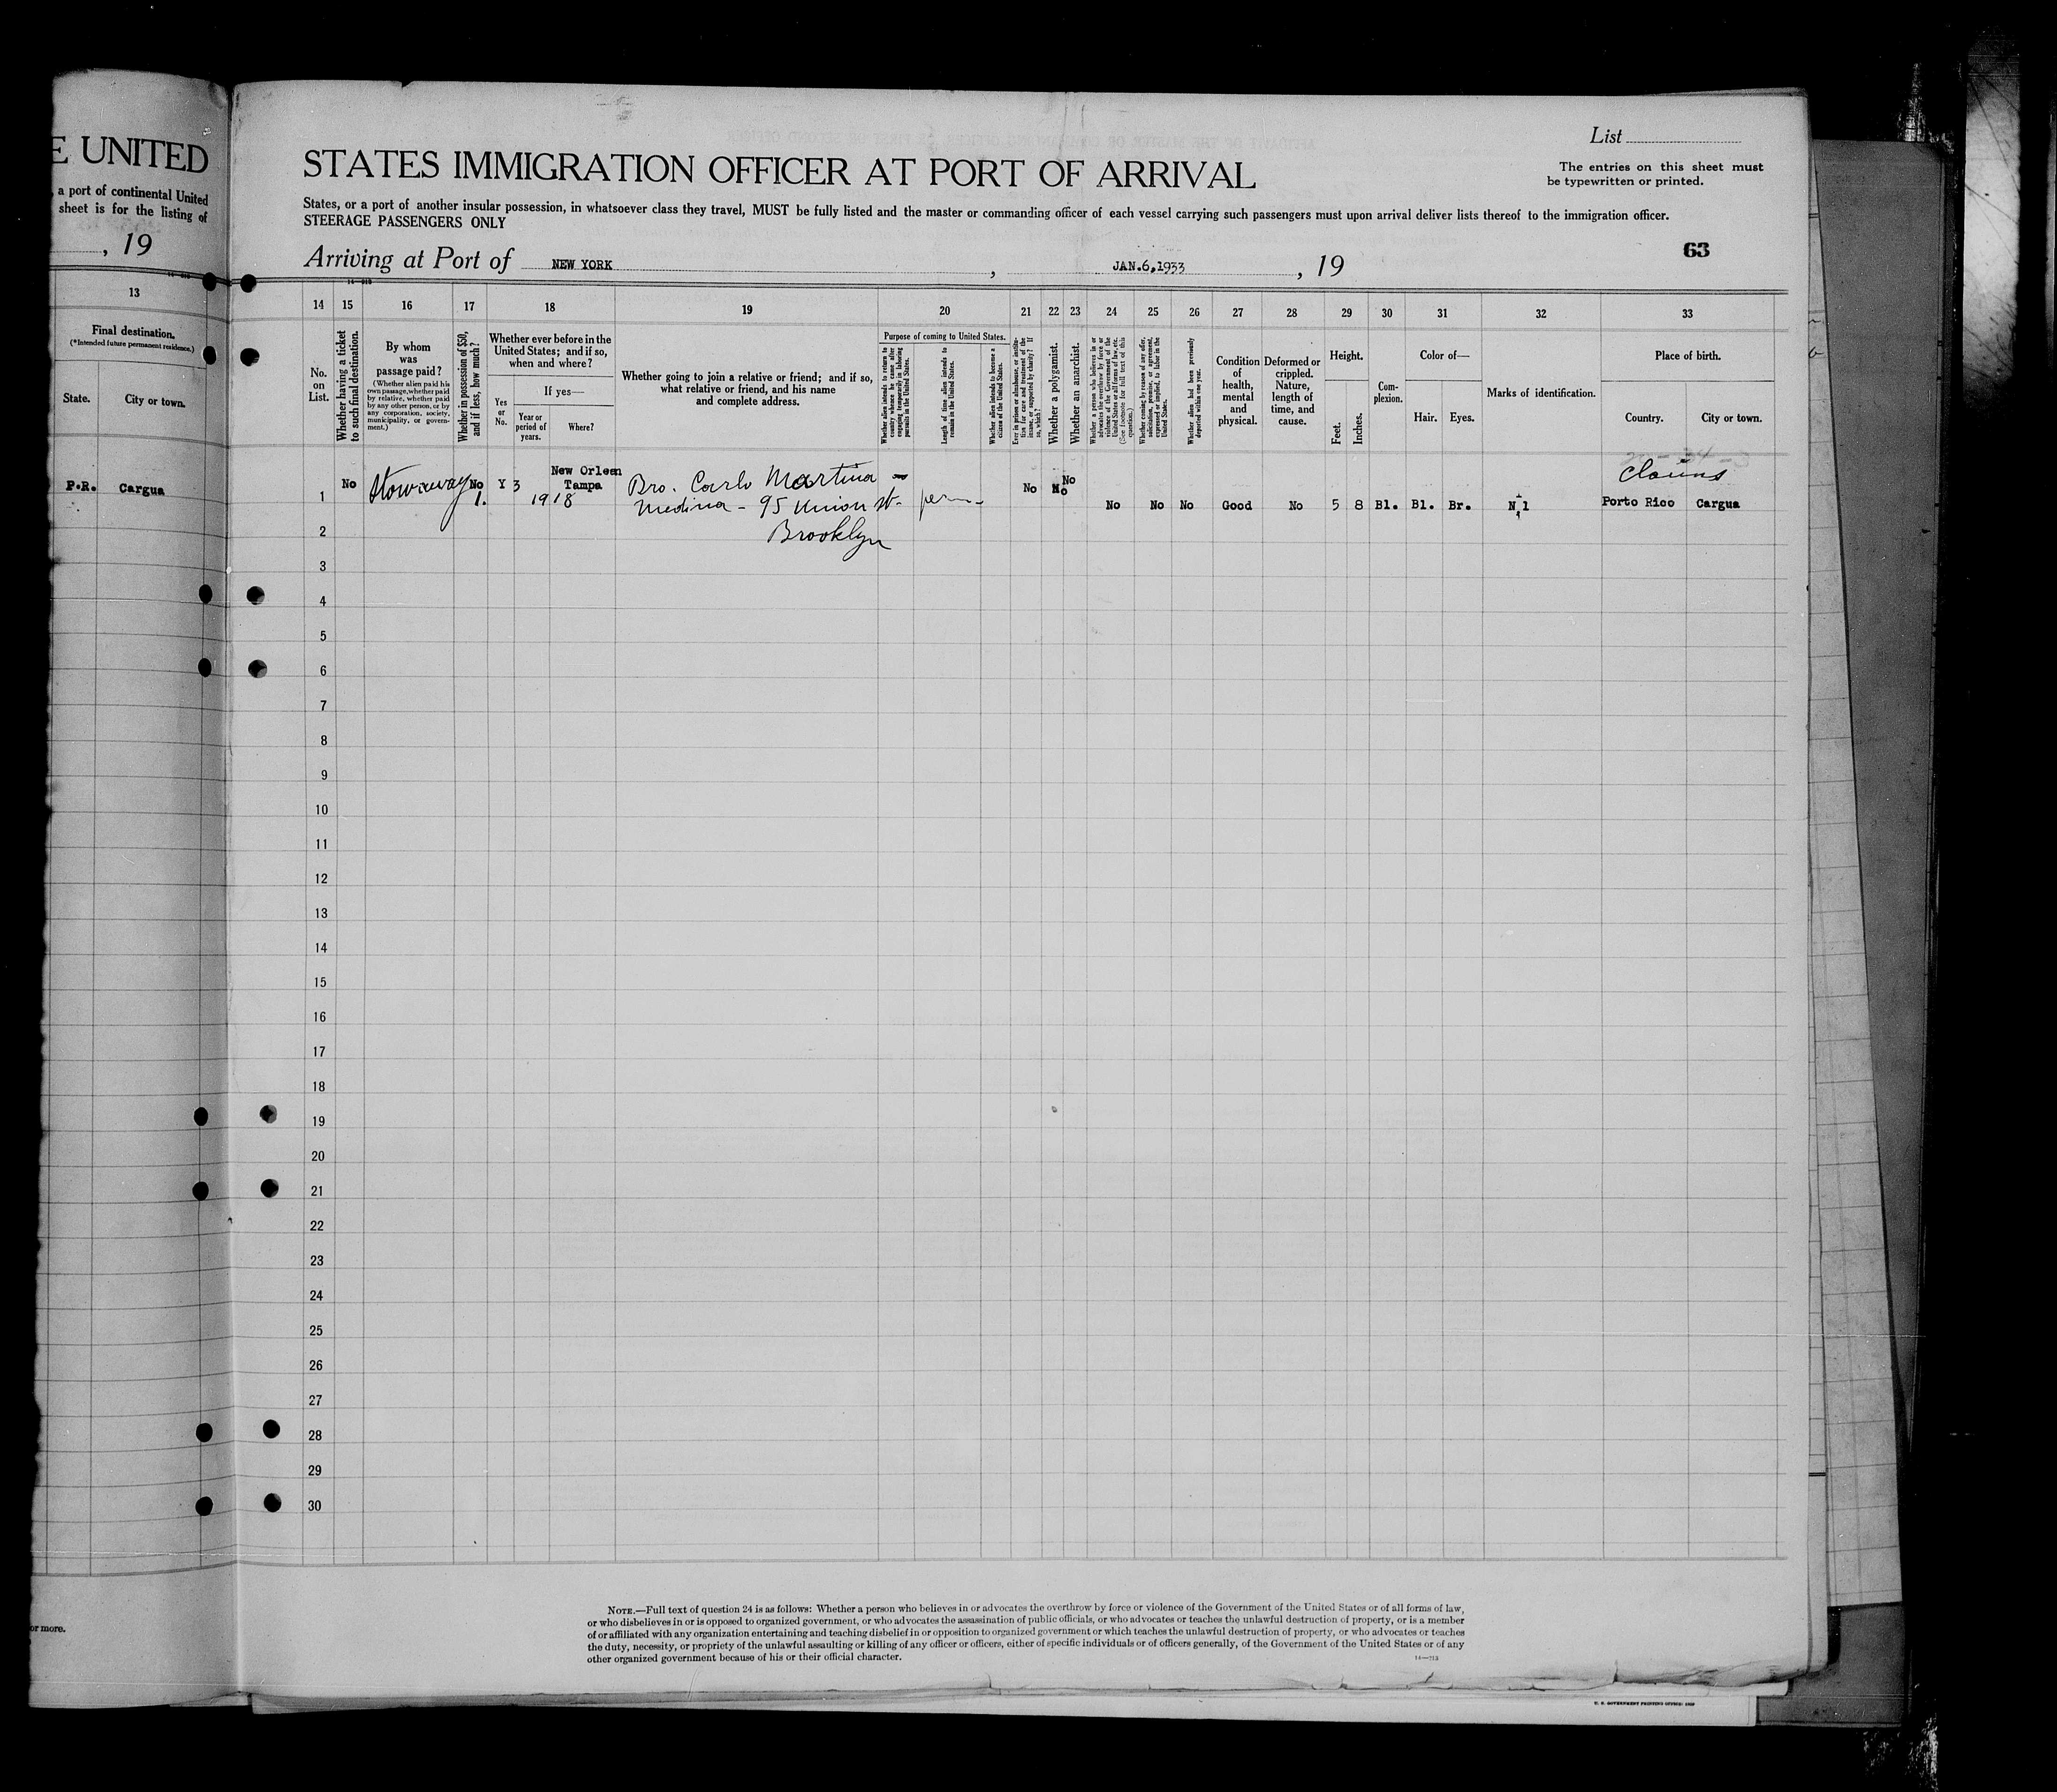 E UNITED
, a port of continental United
sheet is for the listing of
, 19
13
Final destination.
(*Intended future permanent residence.)
State.
City or town.
P.R.
Cargua
or more.
List
The entries on this sheet must
be typewritten or printed.
STATES IMMIGRATION OFFICER AT PORT OF ARRIVAL
States, or a port of another insular possession, in whatsoever class they travel, MUST be fully listed and the master or commanding officer of each vessel carrying such passengers must upon arrival deliver lists thereof to the immigration officer.
STEERAGE PASSENGERS ONLY
63
Arriving at Port of NEW YORK , JAN.6,1933 , 19
14 15 16 17 18 19 20 21 22 23 24 25 26 27 28 29 30 31 32 33
No.
on
List.
Whether having a ticket
to such final destination.
By whom
was
passage paid?
(Whether alien paid his
own passage, whether paid
by relative, whether paid
by any other person, or by
any corporation, society,
municipality, or govern-
ment.)
Whether in possession of $50,
and if less, how much?
Whether ever before in the
United States; and if so,
when and where?
If yes—
Yes
or
No.
Year or
period of
years.
Where?
Whether going to join a relative or friend; and if so,
what relative or friend, and his name
and complete address.
Purpose of coming to United States.
Whether alien intends to return to
country whence he came after
engaging temporarily in laboring
pursuits in the United States.
Length of time alien intends to
remain in the United States.
Whether alien intends to become a
citizen of the United States.
Ever in prison or almshouse, or institu-
tion for care and treatment of the
insane, or supported by charity? If
so, which?
Whether a polygamist.
Whether an anarchist.
Whether a person who believes in or
advocates the overthrow by force or
violence of the Government of the
United States or all forms of law, etc.
(See footnote for full text of this
question.)
Whether coming by reason of any offer,
solicitation, promise, or agreement,
expressed or implied, to labor in the
United States.
Whether alien had been previously
deported within one year.
Condition
of
health,
mental
and
physical.
Deformed or
crippled.
Nature,
length of
time, and
cause.
Height.
Feet.
Inches.
Com-
plexion.
Color of—
Hair.
Eyes.
Marks of identification.
Place of birth.
Country.
City or town.
1
No
Stowaway
No
1.
Y 3
New Orlean
Tampa
1918
Bro. Carlo Martina
Medina - 95 Union St.
Brooklyn
perm
No
No
No
No
No
No
Good
No
5 8
Bl.
Bl.
Br.
Porto Rico
Cargua
2
3
4
5
6
7
8
9
10
11
12
13
14
15
16
17
18
19
20
21
22
23
24
25
26
27
28
29
30
NOTE.—Full text of question 24 is as follows: Whether a person who believes in or advocates the overthrow by force or violence of the Government of the United States or of all forms of law,
or who disbelieves in or is opposed to organized government, or who advocates the assassination of public officials, or who advocates or teaches the unlawful destruction of property, or is a member
of or affiliated with any organization entertaining and teaching disbelief in or opposition to organized government or which teaches the unlawful destruction of property, or who advocates or teaches
the duty, necessity, or propriety of the unlawful assaulting or killing of any officer or officers, either of specific individuals or of officers generally, of the Government of the United States or of any
other organized government because of his or their official character.
U. S. GOVERNMENT PRINTING OFFICE